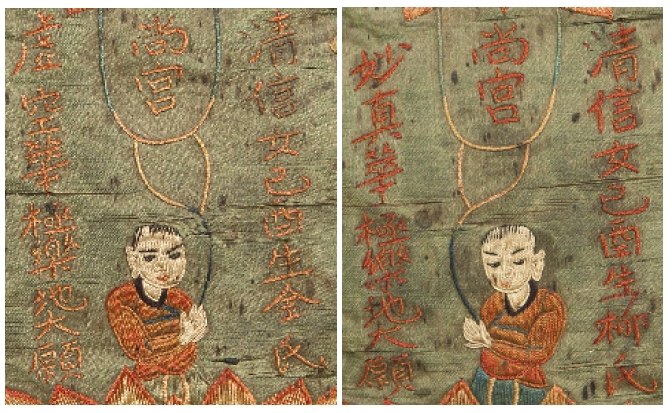 清信女己酉生金氏
尚宮
虛空華極樂地大願
清信女己酉生柳氏
尚宮
妙真華極樂地大願